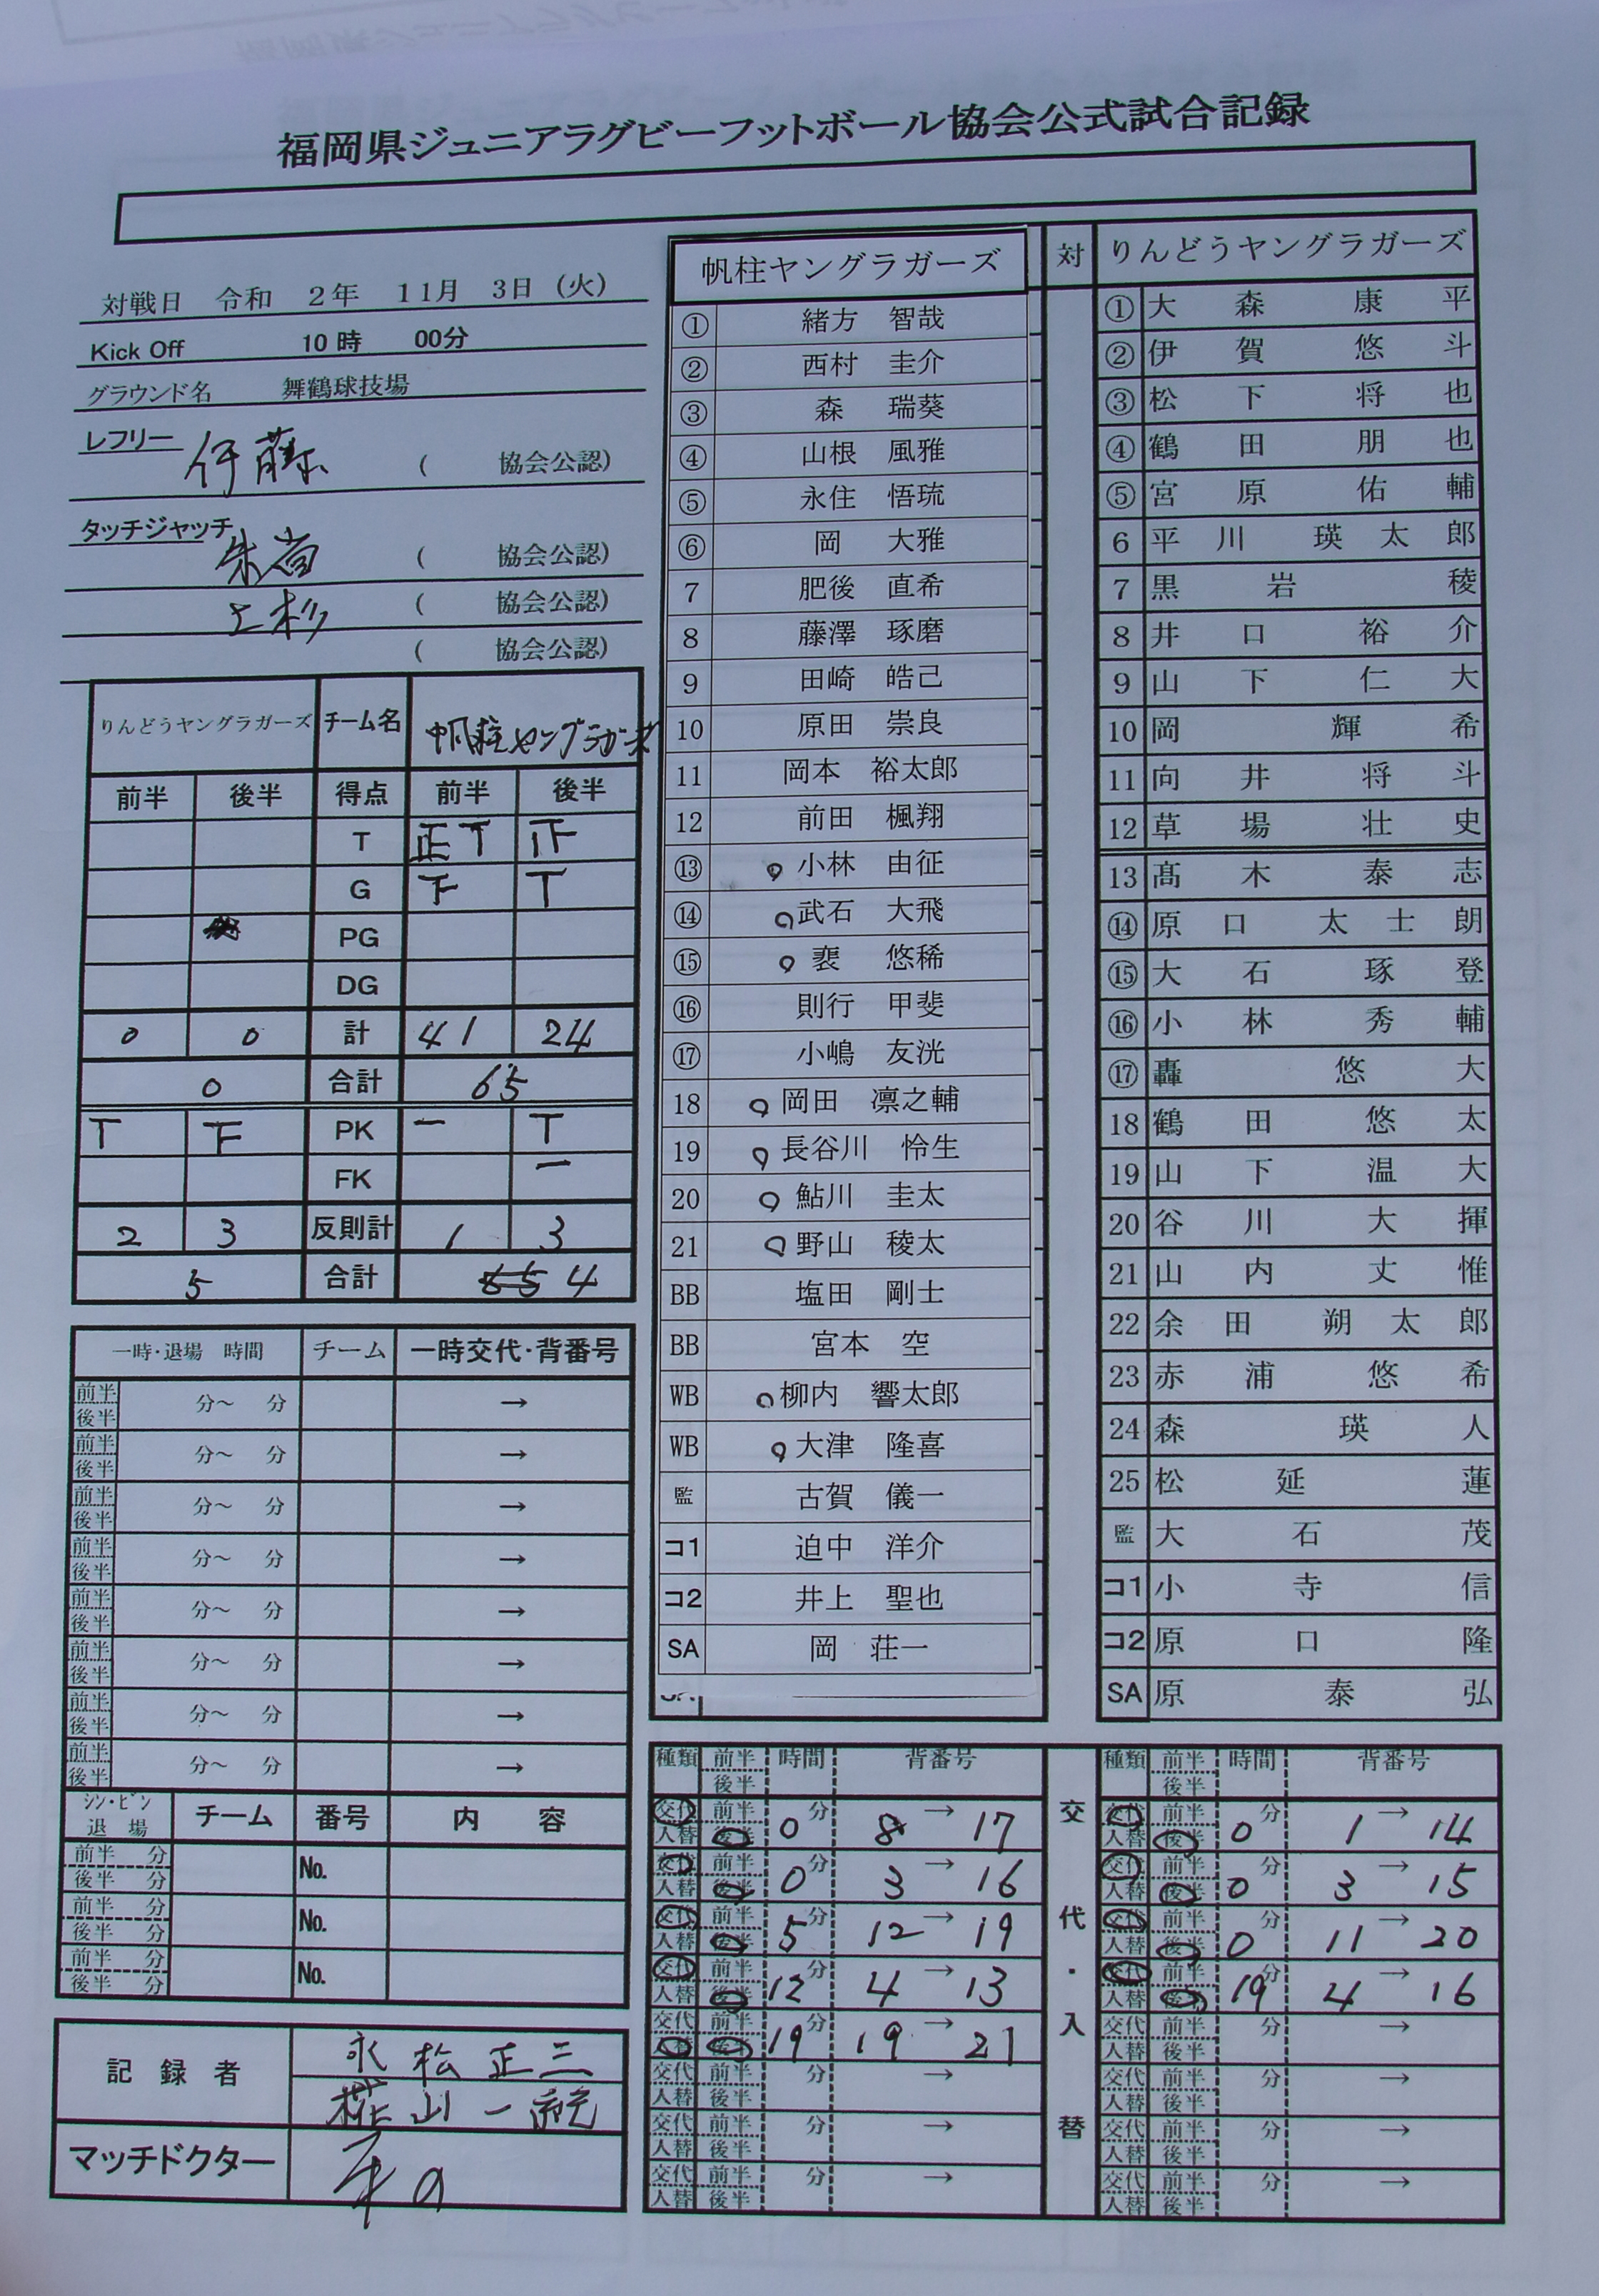 福岡県ジュニアラグビーフットボール協会公式試合記録
対戦日 令和 2年 11月 3日 (火)
Kick Off 10時 00分
グラウンド名 舞鶴球技場
レフリー 伊藤 ( 協会公認)
タッチジャッチ ( 協会公認)
上杉 ( 協会公認)
( 協会公認)
りんどうヤングラガーズ チーム名 帆柱ヤングラガーズ
前半 後半 得点 前半 後半
T 正T 正
G 下 T
PG
DG
0 0 計 41 24
0 合計 65
T 下 PK 一 T
FK 一
2 3 反則計 1 3
5 合計 4
一時・退場 時間 チーム 一時交代・背番号
前半 後半 分～ 分 →
前半 後半 分～ 分 →
前半 後半 分～ 分 →
前半 後半 分～ 分 →
前半 後半 分～ 分 →
前半 後半 分～ 分 →
前半 後半 分～ 分 →
前半 後半 分～ 分 →
シン・ビン 退場 チーム 番号 内容
前半 分 後半 分 No.
前半 分 後半 分 No.
前半 分 後半 分 No.
記録者 永松正三
山一
マッチドクター
帆柱ヤングラガーズ
① 緒方 智哉
② 西村 圭介
③ 森 瑞葵
④ 山根 風雅
⑤ 永住 悟琉
⑥ 岡 大雅
7 肥後 直希
8 藤澤 琢磨
9 田崎 皓己
10 原田 崇良
11 岡本 裕太郎
12 前田 楓翔
⑬ 小林 由征
⑭ 武石 大飛
⑮ 裵 悠稀
⑯ 則行 甲斐
⑰ 小嶋 友洸
18 岡田 凛之輔
19 長谷川 怜生
20 鮎川 圭太
21 野山 稜太
BB 塩田 剛士
BB 宮本 空
WB 柳内 響太郎
WB 大津 隆喜
監 古賀 儀一
コ1 迫中 洋介
コ2 井上 聖也
SA 岡 荘一
対
りんどうヤングラガーズ
① 大森康平
② 伊賀悠斗
③ 松下将也
④ 鶴田朋也
⑤ 宮原佑輔
6 平川瑛太郎
7 黒岩稜
8 井口裕介
9 山下仁大
10 岡輝希
11 向井将斗
12 草場壮史
13 髙木泰志
⑭ 原口太士朗
⑮ 大石琢登
⑯ 小林秀輔
⑰ 轟悠大
18 鶴田悠太
19 山下温大
20 谷川大揮
21 山内丈惟
22 余田朔太郎
23 赤浦悠希
24 森瑛人
25 松延蓮
監 大石茂
コ1 小寺信
コ2 原口隆
SA 原泰弘
種類 前半 後半 時間 背番号
交代 人替 前半 後半 0分 8 → 17
交代 人替 前半 後半 0分 3 → 16
交代 人替 前半 後半 5分 12 → 19
交代 人替 前半 後半 12分 4 → 13
交代 人替 前半 後半 19分 19 → 21
交代 人替 前半 後半 分 →
交代 人替 前半 後半 分 →
交代 人替 前半 後半 分 →
交代・入替
種類 前半 後半 時間 背番号
交代 人替 前半 後半 0分 1 → 14
交代 人替 前半 後半 0分 3 → 15
交代 人替 前半 後半 0分 11 → 20
交代 人替 前半 後半 19分 4 → 16
交代 人替 前半 後半 分 →
交代 人替 前半 後半 分 →
交代 人替 前半 後半 分 →
交代 人替 前半 後半 分 →